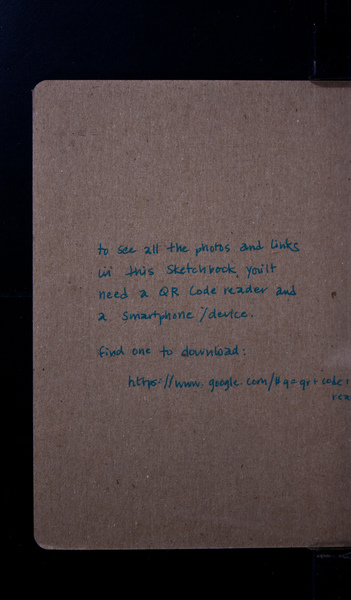 to see all the photos and links
in this sketchbook, you'll
need a QR code reader and
a smartphone/device.
find one to download:
https://www.google.com/#q=qr+code+
rea